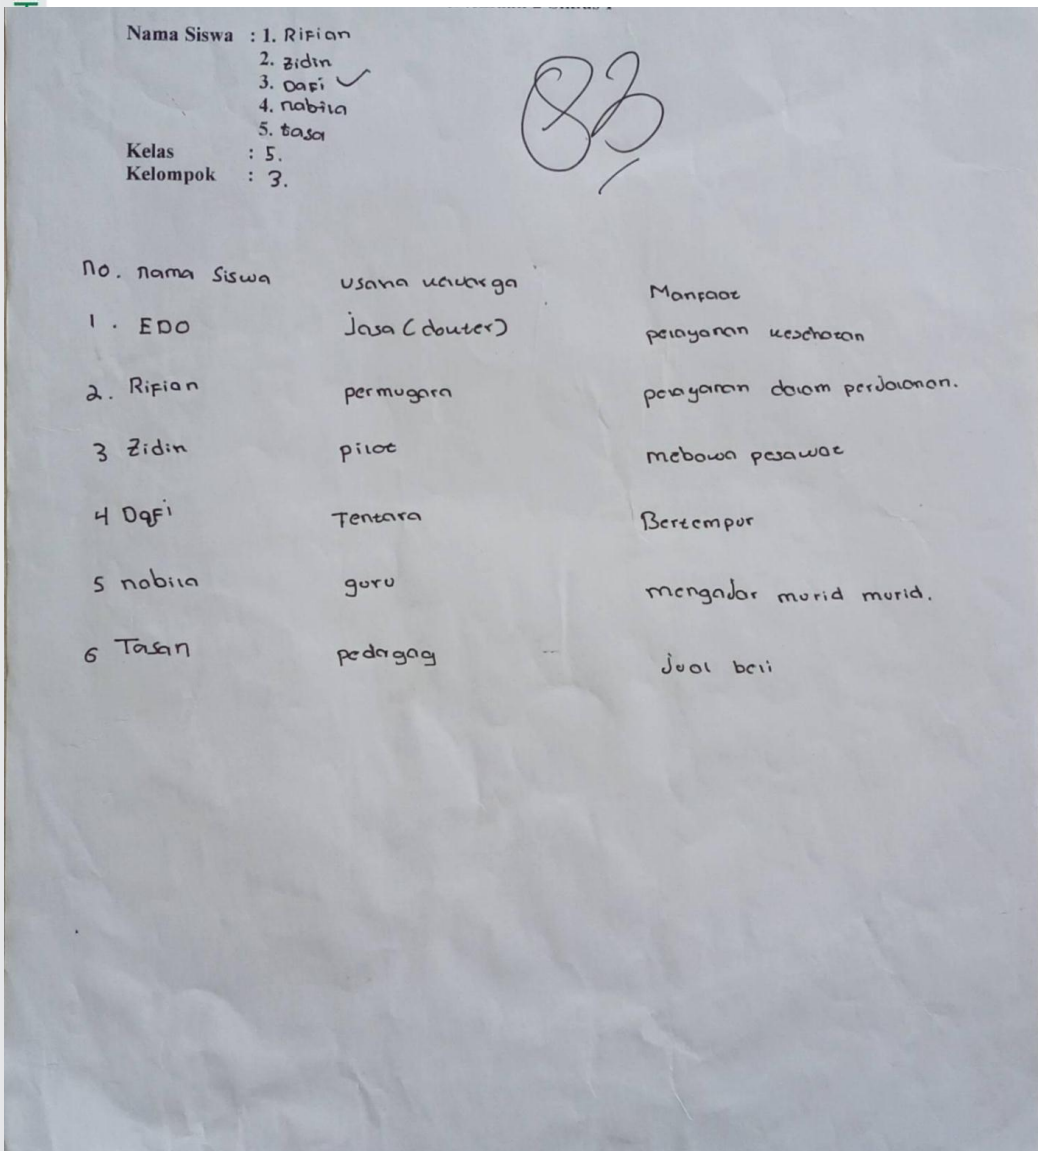 Nama Siswa : 1. Rifian
2. zidin
3. Dafi ✓
4. nabila
5. tasa
Kelas : 5.
Kelompok : 3.
83
no. nama Siswa usaha keluarga Manfaat
1. EDO jasa (dokter) pelayanan kesehatan
2. Rifian permugara pelayanan dalam perjalanan.
3 Zidin pilot mebawa pesawat
4 Dafi Tentara Bertempur
5 nabila guru mengajar murid murid.
6 Tasan pedagag jual beli